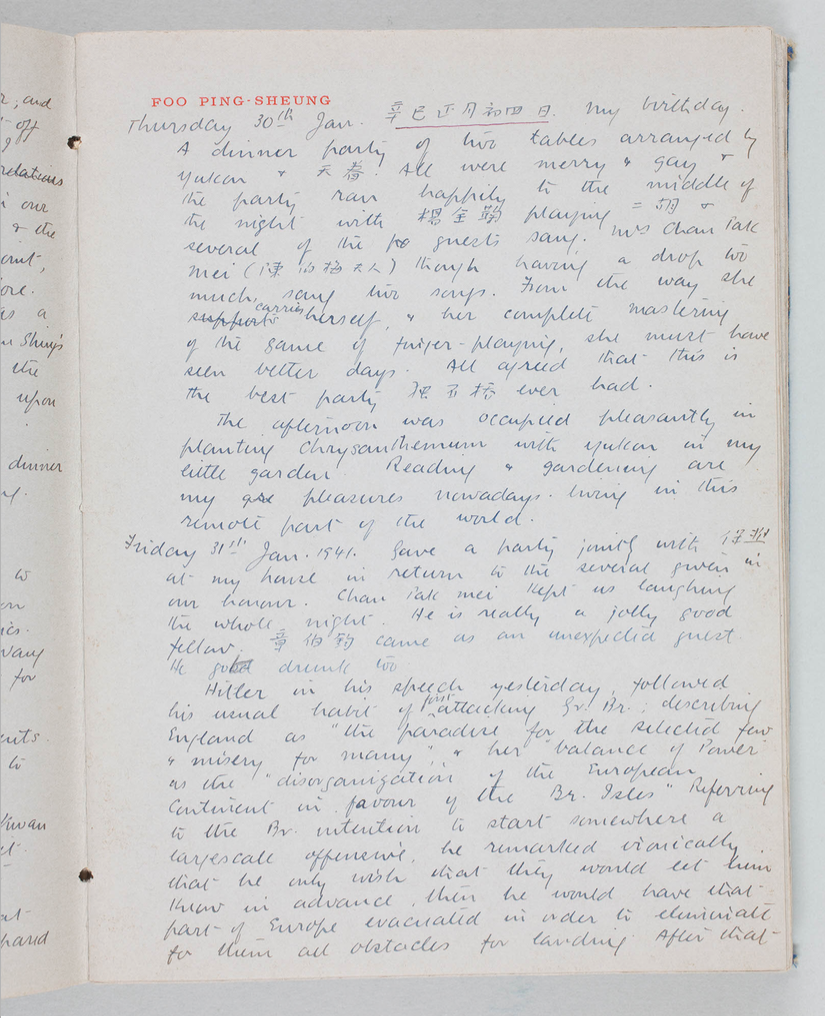 r, and
off
relations
our
& the
oint,
ore.
as a
n Shing's
the
upon
dinner
to
on
ics.
for
to
Kwan
FOO PING-SHEUNG
Thursday 30th Jan. 辛巳正月初四日. My birthday.
A dinner party of two tables arranged by
Yukon & 天眷. All were merry & gay &
the party ran happily to the middle of
the night with 楊金鞠 playing 二胡 &
several of the guests sang. Mrs Chan Pak
Mei (陳伯梅夫人) though having a drop too
much, sang two songs. From the way she
supports carries herself, & her complete mastering
of the game of finger-playing, she must have
seen better days. All agreed that this is
the best party ever had.
The afternoon was occupied pleasantly in
planting Chrysanthemum with Yukon in my
little garden. Reading & gardening are
my pleasures nowadays living in this
remote part of the world.
Friday 31th Jan. 1941. Gave a party jointly with
at my house in return to the several given in
our honour. Chan Pak Mei kept us laughing
the whole night. He is really a jolly good
fellow. 章伯鈞 came as an unexpected guest.
He got drunk too
Hitler in his speech yesterday, followed
his usual habit of first attacking Gr. Br.; describing
England as "the paradise for the selected few
& misery for many", & her "balance of Power
as the "disorganization of the European
Continent in favour of the Br. Isles" Referring
to the Br. intention to start somewhere a
largescale offensive, he remarked ironically
that he only wish that they would let him
know in advance, then he would have that
part of Europe evacuated in order to eliminate
for them all obstacles for landing. After that